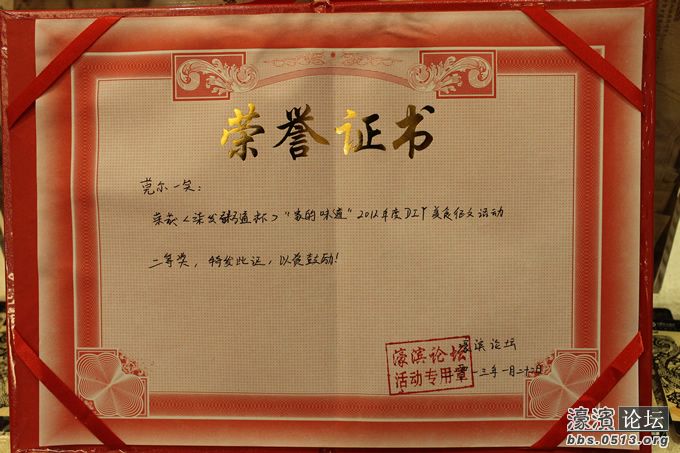 荣誉证书
莞尔一笑:
荣获<柒公粥道杯>"家的味道"2012年度DIY美食征文活动
二等奖,特发此证,以资鼓励!
濠滨论坛
濠滨论坛
活动专用章
一三年一月二十二日
濠滨论坛
bbs.0513.org